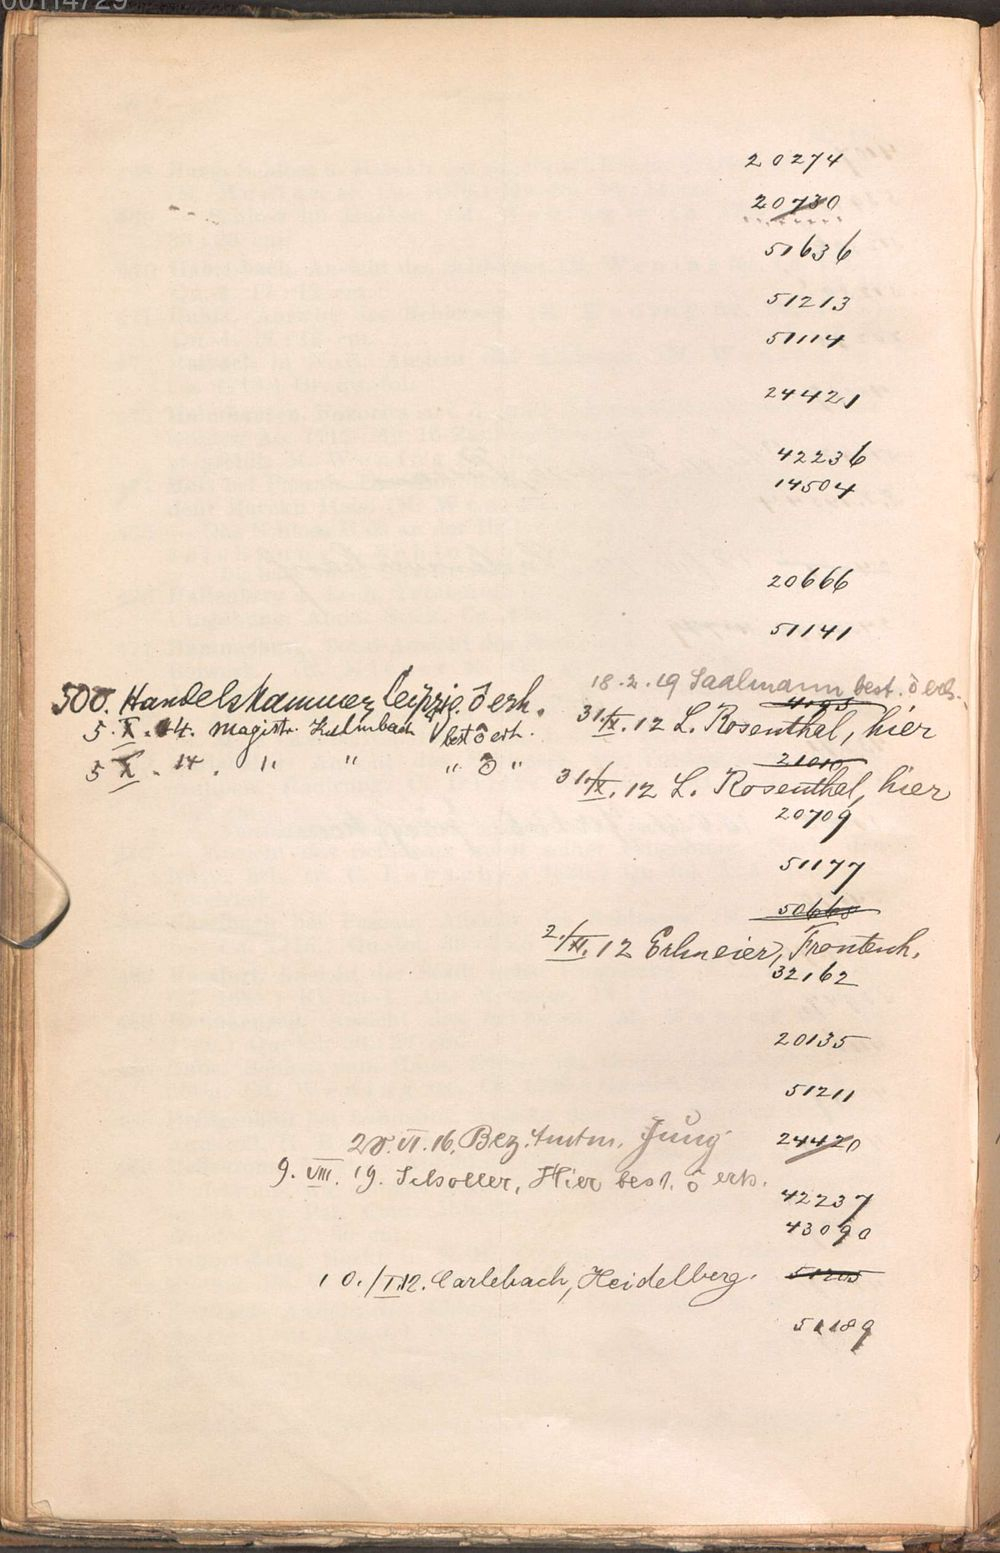 00114729
20274
20730
51636
51213
51114
24421
42236
14504
20666
51141
18.2.19 Saalmann best. ō erh.
500. Handelskammer Leipzig. ō erh.
5.X.14. Magistr. Kulmbach best ō erh.
31/X.12 L. Rosenthal, hier
5 X. 14. " " " ō "
31/X.12 L. Rosenthal, hier
20709
51177
50668
2./XI.12 Erlmeier, Frontenh.
32162
20135
51211
28.VI.16. Bez. Amtm. Jung 24420
9. VIII. 19. Scholler, Hier best. ō erh.
42237
43090
10./I.12. Carlebach, Heidelberg. 51205
51189